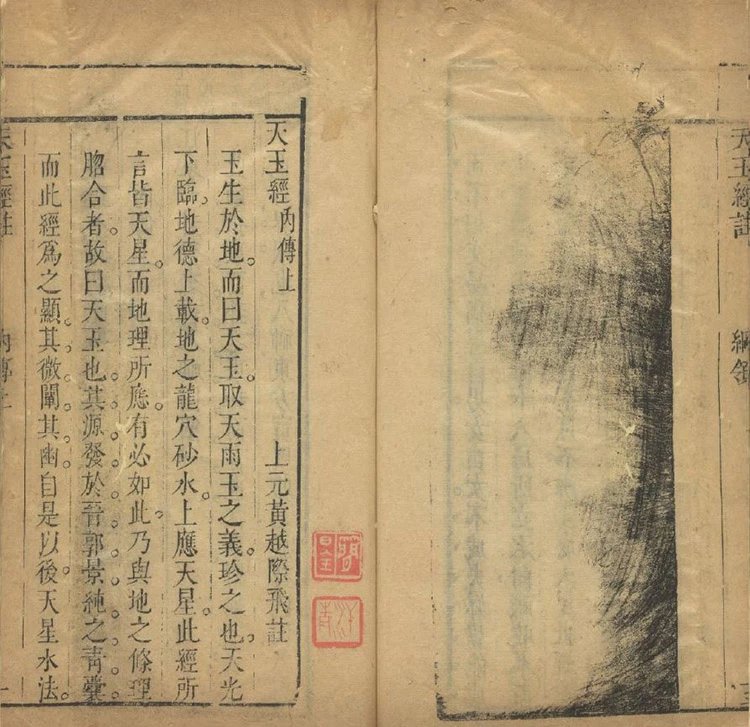 天玉經註
綱領
天玉經內傳上
上元黃越際飛註
玉生於地。而曰天玉。取天雨玉之義。珍之也。天光
下臨。地德上載。地之龍穴砂水。上應天星。此經所
言皆天星。而地理所應。有必如此。乃與地之條理
脗合者。故曰天玉也。其源發於晉郭景純之青囊。
而此經爲之顯。其微闡。其幽。自是以後。天星水法。
天玉經註
內傳上
一